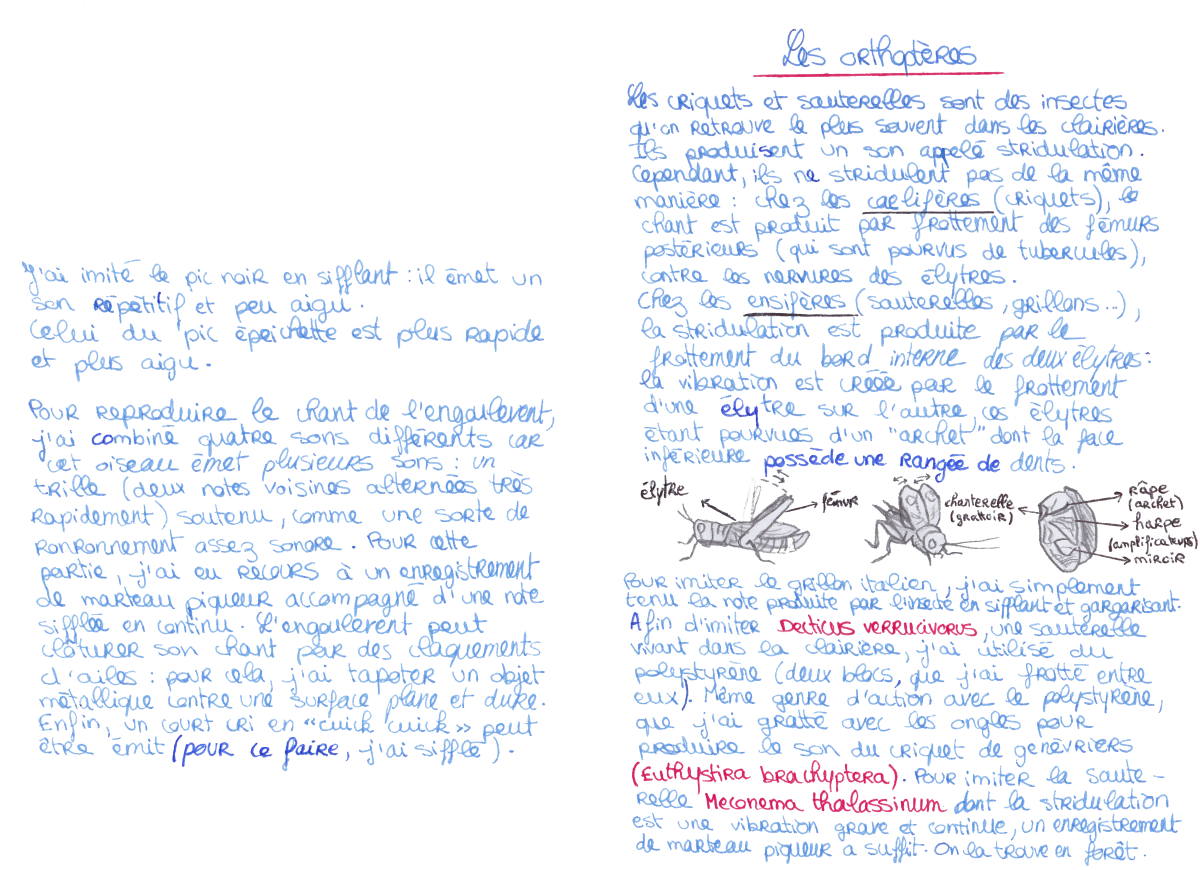 J'ai imité le pic noir en sifflant : il émet un
son répétitif et peu aigu.
Celui du pic épeichette est plus rapide
et plus aigu.
Pour reproduire le chant de l'engoulevent,
j'ai combiné quatre sons différents car
cet oiseau émet plusieurs sons : un
trille (deux notes voisines alternées très
rapidement) soutenu, comme une sorte de
ronronnement assez sonore. Pour cette
partie, j'ai eu recours à un enregistrement
de marteau piqueur accompagné d'une note
sifflée en continu. L'engoulevent peut
clôturer son chant par des claquements
d'ailes : pour cela, j'ai tapoter un objet
métallique contre une surface plane et dure.
Enfin, un court cri en “cuick cuick» peut
être émit (pour ce faire, j'ai sifflé).
Les orthoptères
Les criquets et sauterelles sont des insectes
qu'on retrouve le plus souvent dans les clairières.
Ils produisent un son appelé stridulation.
Cependant, ils ne stridulent pas de la même
manière : chez les caelifères (criquets), le
chant est produit par frottement des fémurs
postérieurs (qui sont pourvus de tubercules),
contre les nervures des élytres.
Chez les ensifères (sauterelles, grillons...),
la stridulation est produite par le
frottement du bord interne des deux élytres :
la vibration est créée par le frottement
d'une élytre sur l'autre, ces élytres
étant pourvues d'un "archet" dont la face
inférieure possède une rangée de dents.
élytre
fémur
chanterelle
(grattoir)
râpe
(archet)
harpe
(amplificateurs)
miroir
Pour imiter le grillon italien, j'ai simplement
tenu la note produite par l'insecte en sifflant et gargarisant.
Afin d'imiter Decticus verrucivorus, une sauterelle
vivant dans la clairière, j'ai utilisé du
polystyrène (deux blocs, que j'ai frotté entre
eux). Même genre d'action avec le polystyrène,
que j'ai gratté avec les ongles pour
produire le son du criquet de genévriers
(Euthystira brachyptera). Pour imiter la saute-
relle Meconema thalassinum dont la stridulation
est une vibration grave et continue, un enregistrement
de marteau piqueur a suffit. On la trouve en forêt.